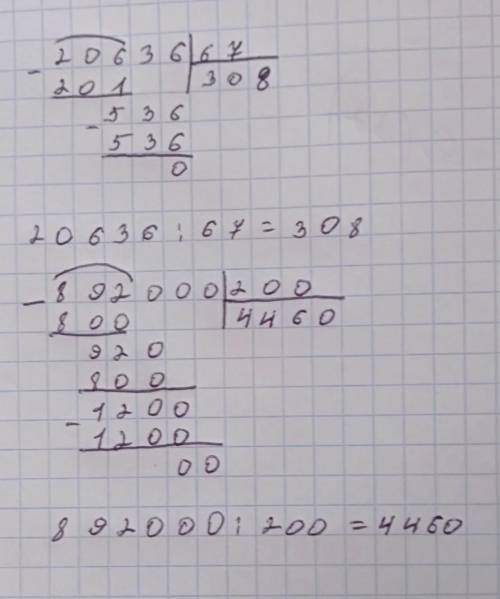 - 20636 | 67
201 | 308
- 536
536
0
20636 : 67 = 308
- 892000 | 200
800 | 4460
920
800
- 1200
1200
00
892000 : 200 = 4460